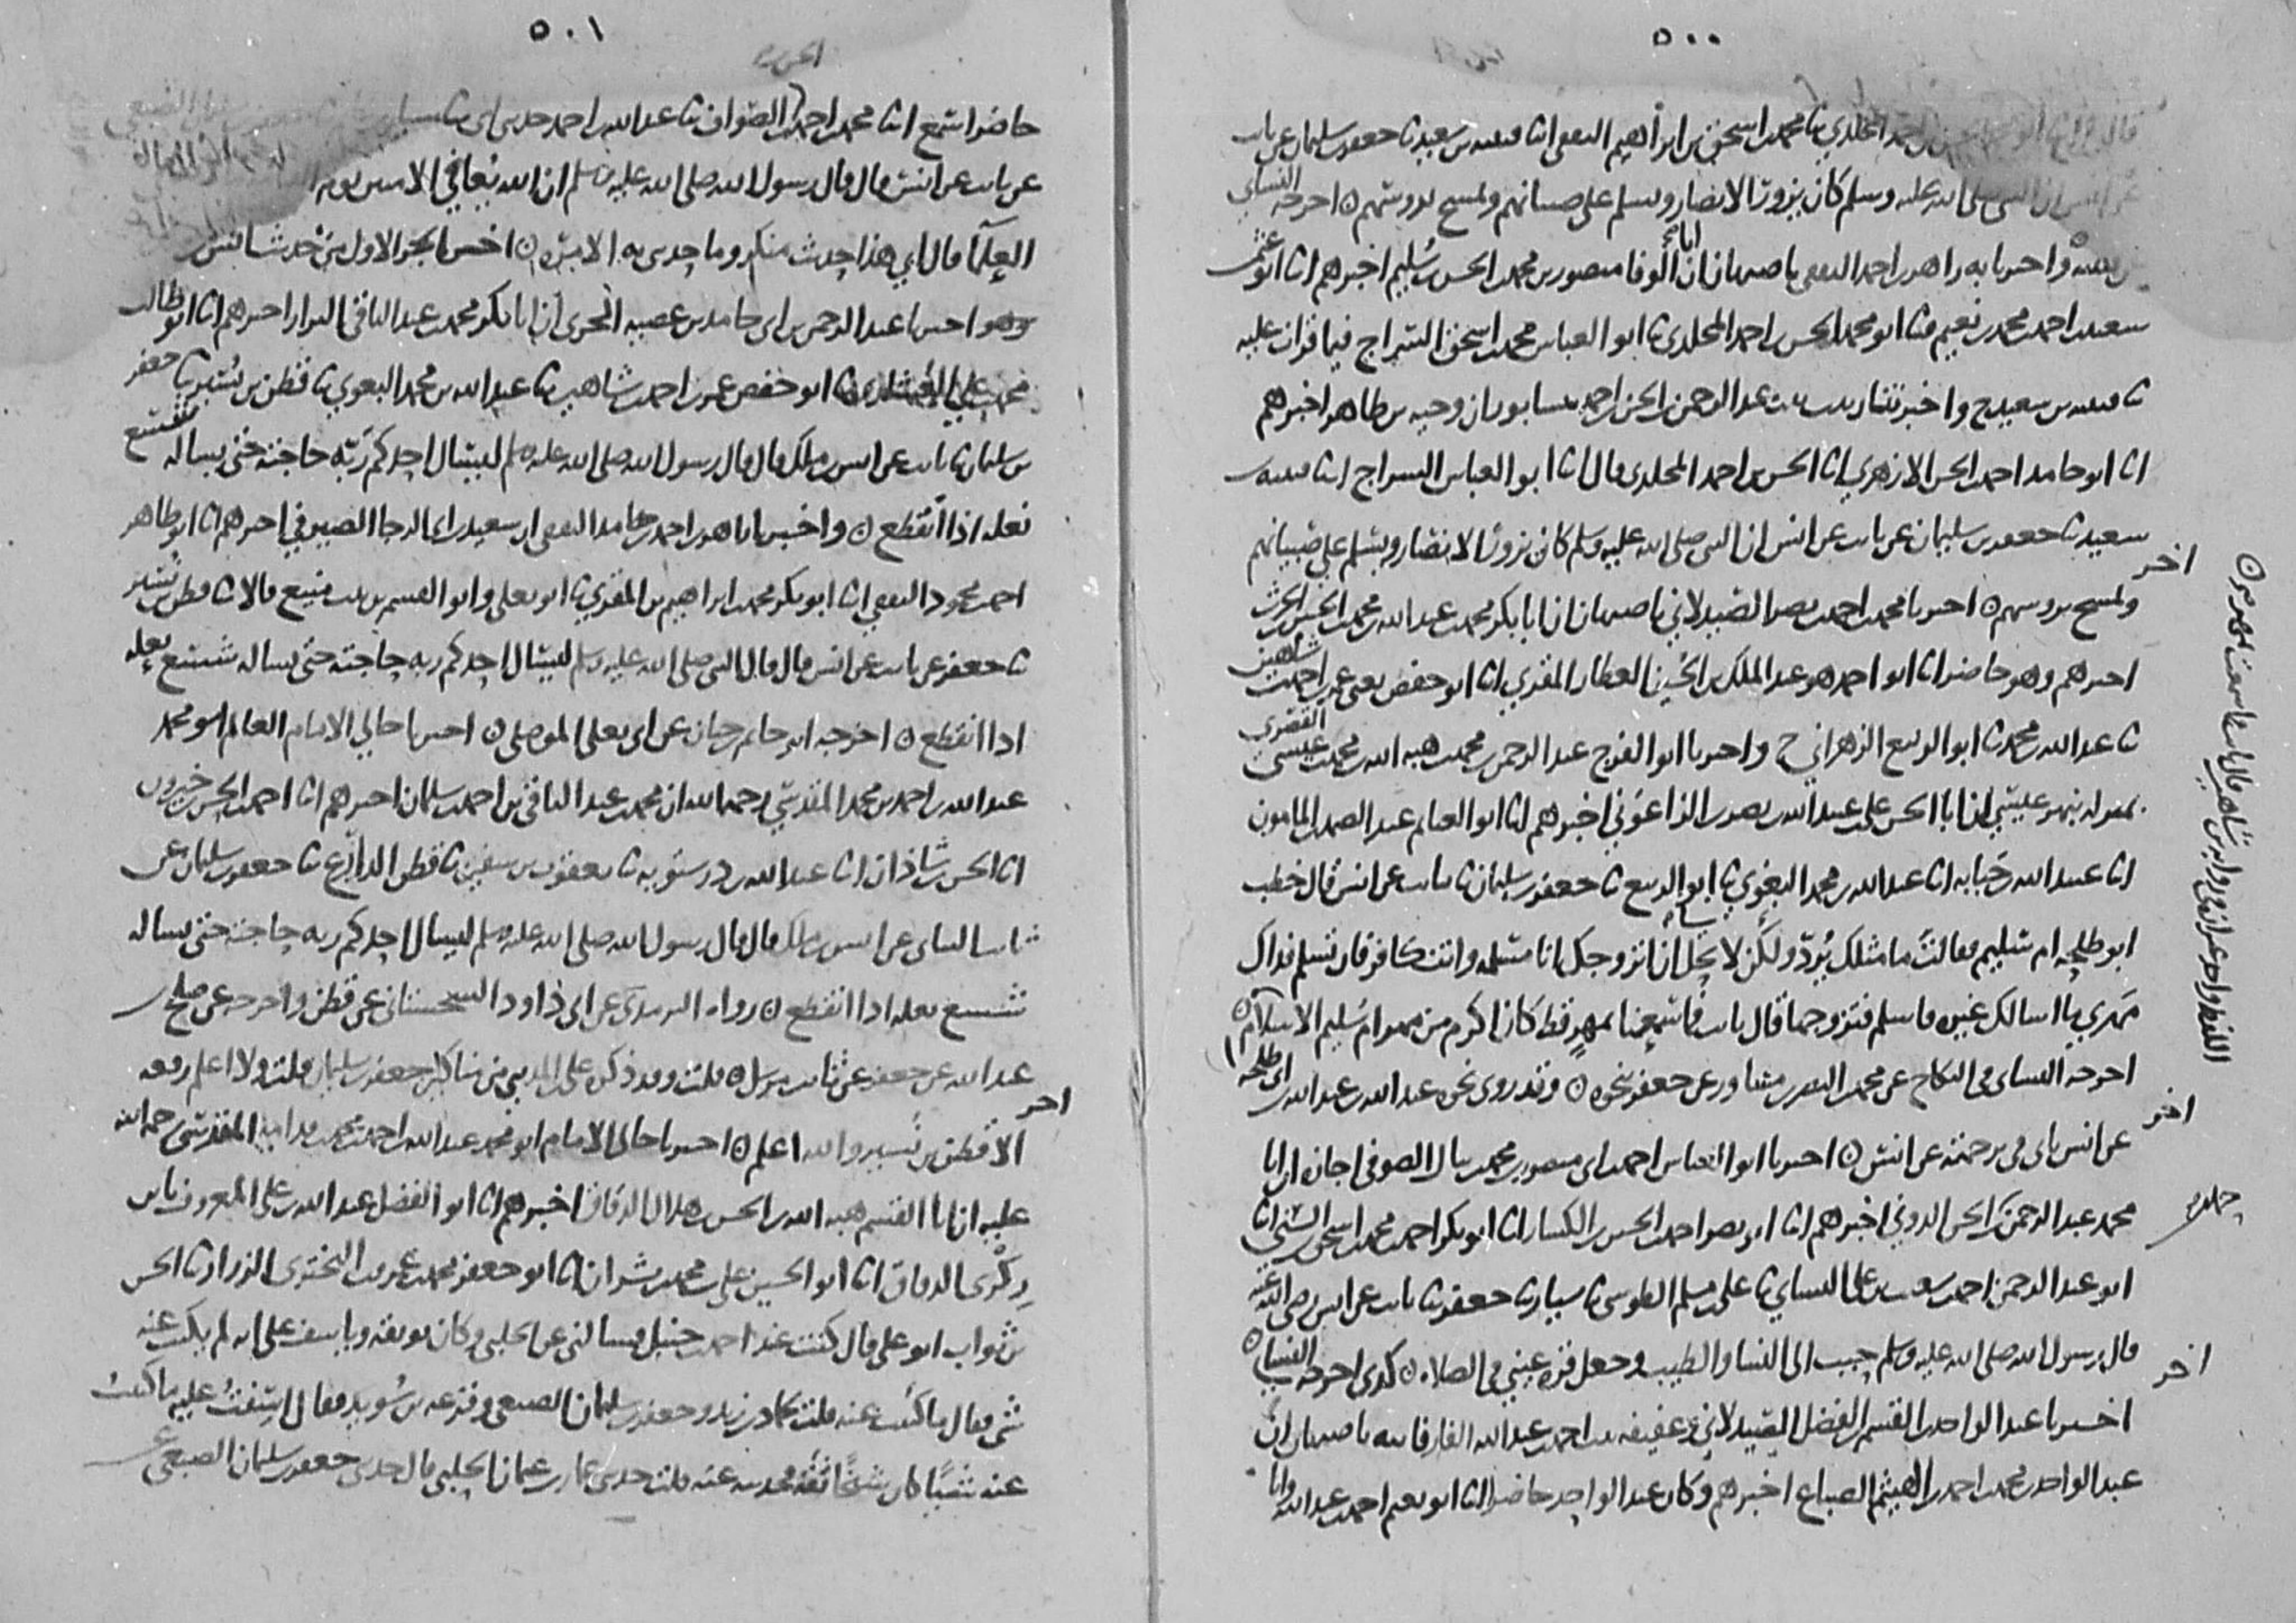 ٥٠٠
المخلدي ثنا محمد بن اسحق بن ابرهيم الثقفي انا قتيبه بن سعيد ثنا جعفر بن سليمان عن ثابت
عن انس ان النبي صلى الله عليه وسلم كان يزور الانصار ويسلم على صبيانهم ويمسح بروسهم ٥ اخرجه النساي
واخبرنا به زاهر بن احمد الثقفي باصبهان ان ابا الوفا منصور بن محمد بن الحسن بن سليم اخبرهم انا ابو عثمن
سعيد بن احمد بن محمد بن نعيم ثنا ابو محمد الحسن بن احمد المخلدي ثنا ابو العباس محمد بن اسحق السراج فيما قرات عليه
ثنا قتيبه بن سعيد ح واخبرتنا زينب بنت عبد الرحمن بن الحسن بن احمد بنيسابور ان وجيه بن طاهر اخبرهم
انا ابو حامد احمد بن الحسن الازهري انا الحسن بن احمد المخلدي قال انا ابو العباس السراج انا قتيبه بن
سعيد ثنا جعفر بن سليمان عن ثابت عن انس ان النبي صلى الله عليه وسلم كان يزور الانصار ويسلم على صبيانهم
اخر
ويمسح بروسهم ٥ اخبرنا محمد بن احمد بن نصر الصيدلاني باصبهان ان ابا بكر محمد بن عبد الله بن محمد بن الحسين بن الحرث
اخبرهم وهو حاضر انا ابو احمد هو عبد الملك بن الحسين العطار المقري انا ابو حفص يعني عمر بن احمد بن شاهين
ثنا عبد الله بن محمد ثنا ابو الربيع الزهراني ح واخبرنا ابو الفرج عبد الرحمن بن محمد بن هبه الله بن محمد بن عيسى القصري
بمنزله بنهر عيسى ان ابا الحسن علي بن عبيد الله بن نصر بن الزاغوني اخبرهم انا ابو الغنايم عبد الصمد بن المامون
انا عبيد الله بن حبابه انا عبد الله بن محمد البغوي ثنا ابو الربيع ثنا جعفر بن سليمان ثنا ثابت عن انس قال خطب
ابو طلحه ام سليم فقالت ما مثلك يرد ولكن لا يحل ان اتزوجك انا مسلمه وانت كافر فان تسلم فذاك
مهري لا اسالك غيره فاسلم فتزوجها قال ثابت فما سمعنا بمهر قط كان اكرم من مهر ام سليم الاسلام ٥
اخرجه النساي في النكاح عن محمد بن النضر بن مساور عن جعفر بنحوه ٥ وقد روي نحوه عبد الله بن عبد الله بن ابي طلحه
اخر
عن انس ياتي في ترجمته عن انس ٥ اخبرنا ابو العباس احمد بن ابي منصور بن محمد بن ينال الصوفي اجازه ان ابا
محمد عبد الرحمن بن الحسن الدوني اخبرهم انا ابو نصر احمد بن الحسين بن الكسار انا ابو بكر احمد بن محمد بن اسحق السني انا
ابو عبد الرحمن احمد بن شعيب بن علي النساي ثنا علي بن مسلم الطوسي ثنا سيار ثنا جعفر ثنا ثابت عن انس رضي الله عنه
قال رسول الله صلى الله عليه وسلم حبب الي النسا والطيب وجعل قره عيني في الصلاه ٥ كذي اخرجه النساي ٥
اخر
اخبرنا عبد الواحد بن القسم بن الفضل الصيدلاني وعفيفه بنت احمد بن عبد الله الفارفانيه باصبهان ان
عبد الواحد بن محمد بن احمد بن الهيثم الصباغ اخبرهم وكان عبد الواحد حاضرا انا ابو نعيم احمد بن عبد الله وانا
٥٠١
حاضر اسمع انا محمد بن احمد بن الصواف ثنا عبد الله بن احمد حدثني ابي ثنا سيار
عن ثابت عن انس قال قال رسول الله صلى الله عليه وسلم ان الله يعافي الاميين يوم
العلما قال ابي هذا حديث منكر وما حدثني به الا مره ٥ اخر الجزء الاول من حديث انس
وهو اخبرنا عبد الرحمن بن ابي حامد بن عصيه الحربي ان ابا بكر محمد بن عبد الباقي البزاز اخبرهم انا ابو طالب
محمد بن علي العشاري ثنا ابو حفص عمر بن احمد بن شاهين ثنا عبد الله بن محمد البغوي ثنا قطن بن نسير ثنا جعفر
بن سليمان ثنا ثابت عن انس بن ملك قال قال رسول الله صلى الله عليه وسلم ليسال احدكم ربه حاجته حتى يساله شسع
نعله اذا انقطع ٥ واخبرنا زاهر بن احمد بن حامد الثقفي ان سعيد بن ابي الرجا الصيرفي اخبرهم انا ابو طاهر
احمد بن محمود الثقفي انا ابو بكر محمد بن ابراهيم بن المقري ثنا ابو يعلى وابو القسم بن بنت منيع قالا ثنا قطن بن نسير
ثنا جعفر عن ثابت عن انس قال قال النبي صلى الله عليه وسلم ليسال احدكم ربه حاجته حتى يساله شسع نعله
اذا انقطع ٥ اخرجه ابو حاتم بن حبان عن ابي يعلى الموصلي ٥ اخبرنا خالي الامام العالم ابو محمد
عبد الله بن احمد بن محمد المقدسي رحمه الله ان محمد بن عبد الباقي بن احمد بن سلمان اخبرهم انا احمد بن الحسن بن خيرون
انا الحسن بن شاذان انا عبد الله بن درستويه ثنا يعقوب بن سفين ثنا قطن الدارع ثنا جعفر بن سليمان عن
ثابت البناني عن انس بن ملك قال قال رسول الله صلى الله عليه وسلم ليسال احدكم ربه حاجته حتى يساله
شسع نعله اذا انقطع ٥ رواه الترمذي عن ابي داود السجستاني عن قطن واخرجه عن صلح بن
عبد الله عن جعفر عن ثابت مرسل ٥ قلت وقد ذكره علي بن المديني من مناكير جعفر بن سليمان قلت ولا اعلم رفعه
اخر
الا قطن بن نسير والله اعلم ٥ اخبرنا خالي الامام ابو محمد عبد الله بن احمد بن محمد بن قدامه المقدسي رحمه الله
عليه ان ابا القسم هبه الله بن الحسن بن هلال الدقاق اخبرهم انا ابو الفضل عبد الله بن علي المعروف بابن
زكري الدقاق انا ابو الحسين علي بن محمد بن بشران انا ابو جعفر محمد بن عمرو بن البختري الرزاز ثنا الحسن
بن ثواب ابو علي قال كنت عند احمد بن حنبل فسالني عن الجلبي وكان يوثقه وياسف على انه لم يكتب عنه
شي فقال ما كتبت عنه قلت حماد بن زيد وجعفر بن سليمان الضبعي وقزعه بن سويد فقال اسفت عليه ما كتبت
عنه شيا كان شيخا ثقه فحدثته عنه قلت حدثني عمار بن عثمان الجلبي قال حدثني جعفر بن سليمان الضبعي عن